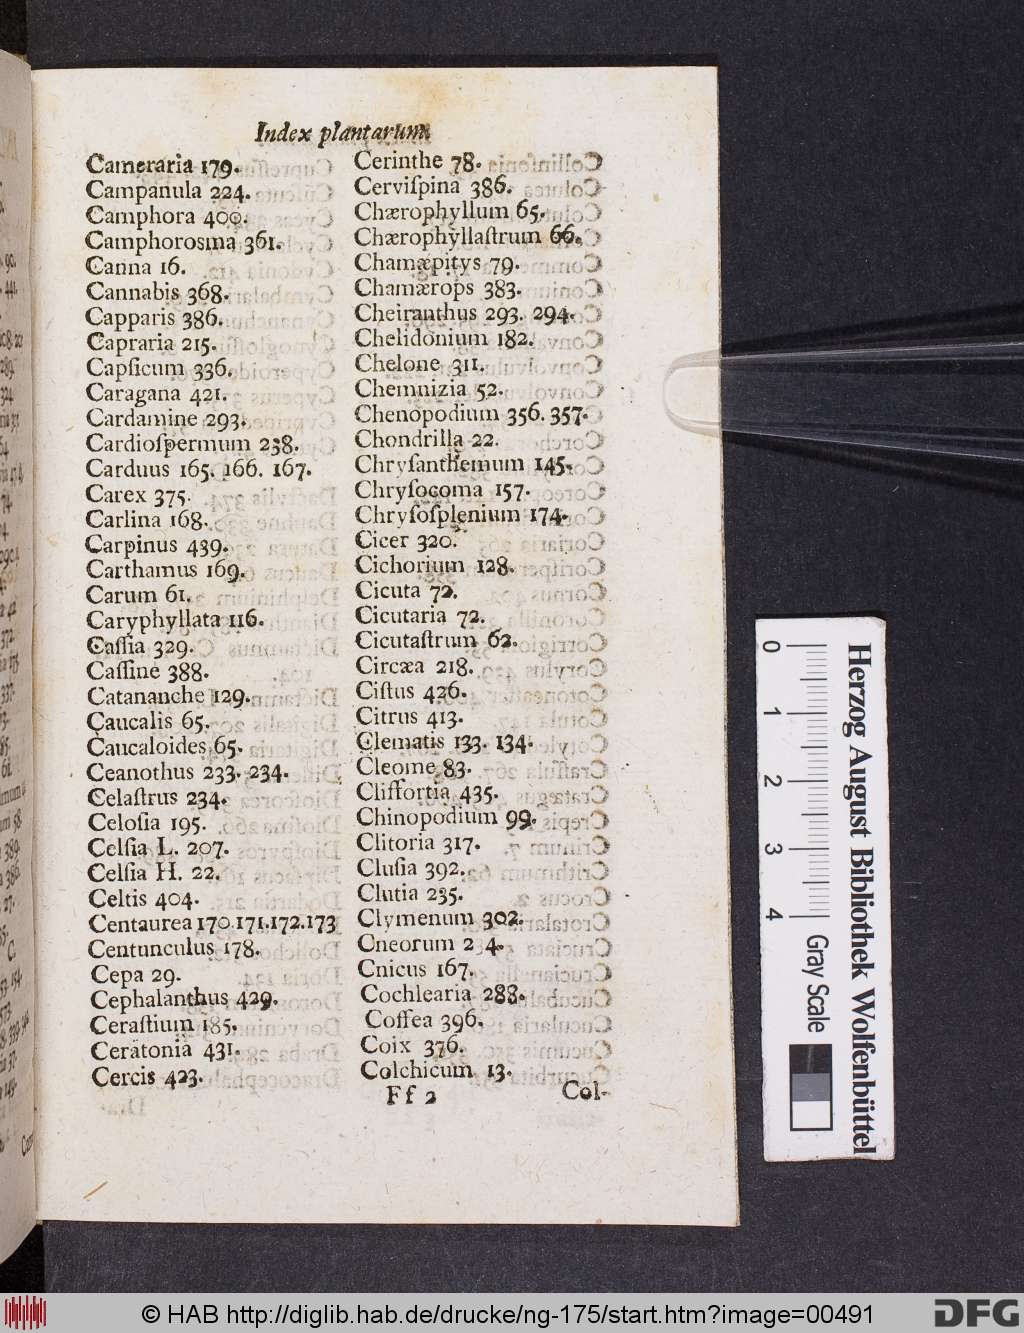 Index plantarum
Cameraria 179.
Campanula 224.
Camphora 400.
Camphorosma 361.
Canna 16.
Cannabis 368.
Capparis 386.
Capraria 215.
Capſicum 336.
Caragana 421.
Cardamine 293.
Cardioſpermum 238.
Carduus 165. 166. 167.
Carex 375.
Carlina 168.
Carpinus 439.
Carthamus 169.
Carum 61.
Caryphyllata 116.
Caſſia 329.
Caſſine 388.
Catananche 129.
Caucalis 65.
Caucaloides 65.
Ceanothus 233. 234.
Celaſtrus 234.
Celoſia 195.
Celſia L. 207.
Celſia H. 22.
Celtis 404.
Centaurea 170.171.172.173
Centunculus 178.
Cepa 29.
Cephalanthus 429.
Ceraſtium 185.
Ceratonia 431.
Cercis 423.
Cerinthe 78.
Cerviſpina 386.
Chærophyllum 65.
Chærophyllaſtrum 66.
Chamæpitys 79.
Chamærops 383.
Cheiranthus 293. 294.
Chelidonium 182.
Chelone 311.
Chemnizia 52.
Chenopodium 356. 357.
Chondrilla 22.
Chryſanthemum 145.
Chryſocoma 157.
Chryſoſplenium 174.
Cicer 320.
Cichorium 128.
Cicuta 72.
Cicutaria 72.
Cicutaſtrum 62.
Circæa 218.
Ciſtus 426.
Citrus 413.
Clematis 133. 134.
Cleome 83.
Cliffortia 435.
Chinopodium 99.
Clitoria 317.
Cluſia 392.
Clutia 235.
Clymenum 302.
Cneorum 2 4.
Cnicus 167.
Cochlearia 288.
Coffea 396.
Coix 376.
Colchicum 13.
F f 2
Col-
Herzog August Bibliothek Wolfenbüttel
0 1 2 3 4
Gray Scale
© HAB http://diglib.hab.de/drucke/ng-175/start.htm?image=00491
DFG